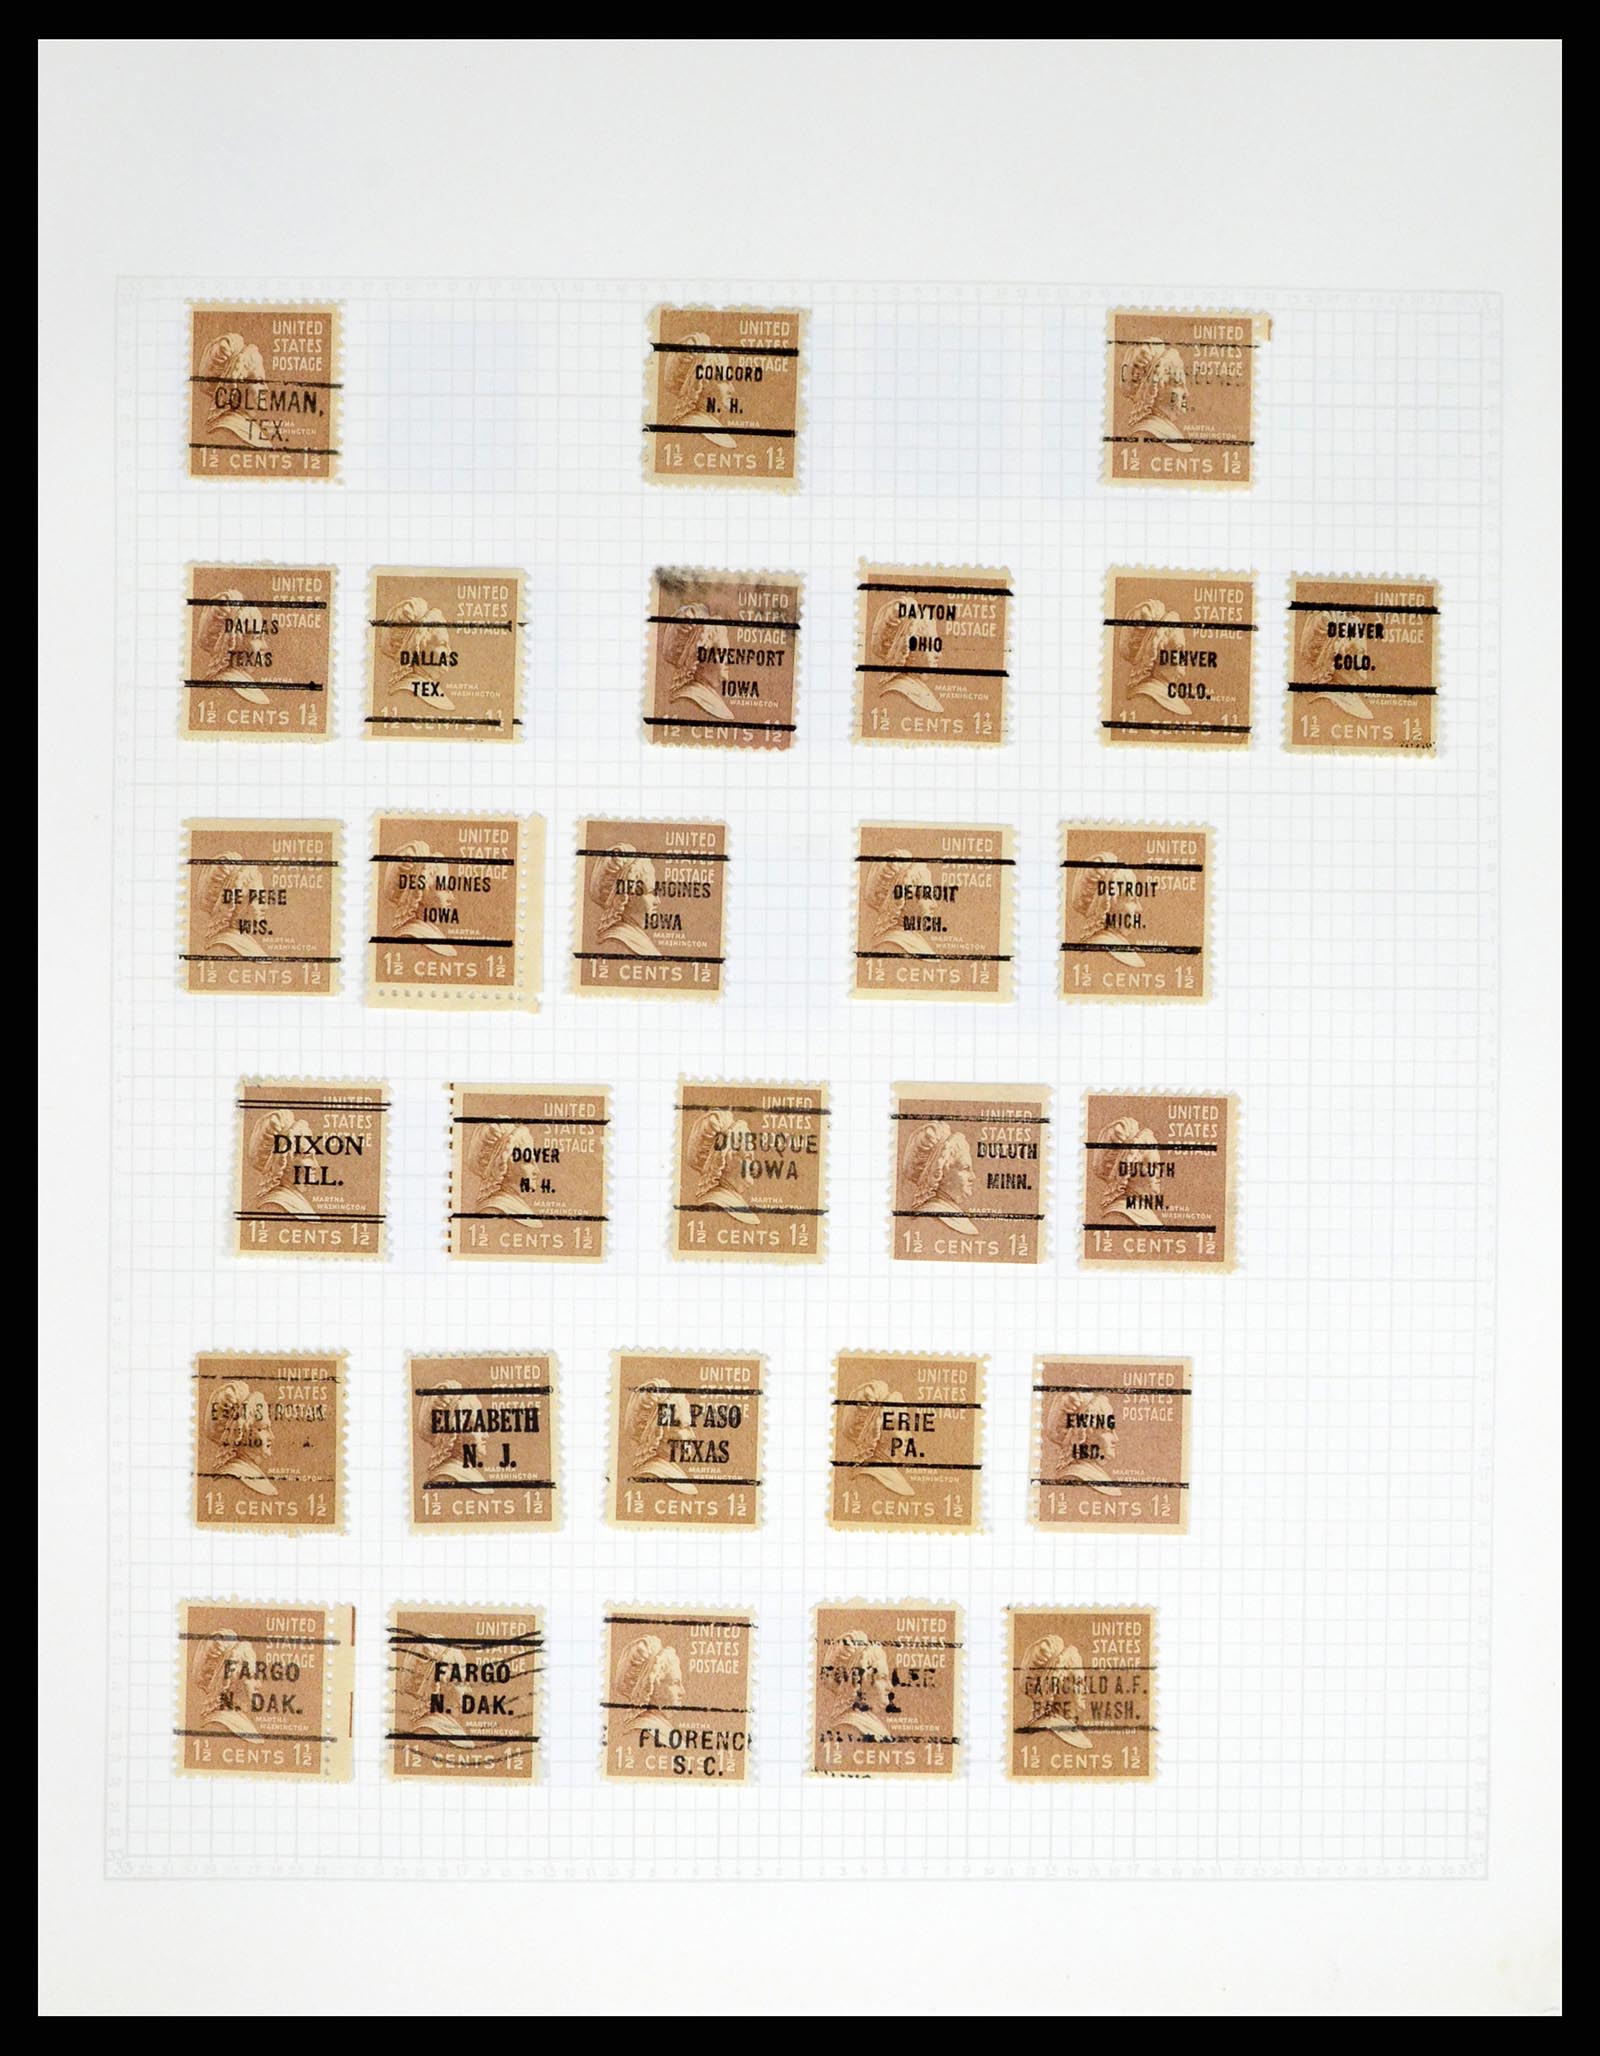 UNITED
STATES
POSTAGE
COLEMAN,
TEX.
MARTHA
WASHINGTON
1½ CENTS 1½
UNITED
STATES
POSTAGE
CONCORD
N. H.
MARTHA
1½ CENTS 1½
UNITED
STATES
POSTAGE
PA.
MARTHA
WASHINGTON
1½ CENTS 1½
UNITED
STATES
POSTAGE
DALLAS
TEXAS
MARTHA
1½ CENTS 1½
UNITED
STATES
POSTAGE
DALLAS
TEX.
MARTHA
WASHINGTON
1½ CENTS 1½
UNITED
STATES
POSTAGE
DAVENPORT
IOWA
MARTHA
WASHINGTON
1½ CENTS 1½
UNITED
STATES
POSTAGE
DAYTON
OHIO
MARTHA
WASHINGTON
1½ CENTS 1½
UNITED
STATES
POSTAGE
DENVER
COLO.
1½ CENTS 1½
UNITED
POSTAGE
DENVER
COLO.
MARTHA
WASHINGTON
1½ CENTS 1½
UNITED
STATES
POSTAGE
DE PERE
WIS.
MARTHA
WASHINGTON
1½ CENTS 1½
UNITED
STATES
POSTAGE
DES MOINES
IOWA
MARTHA
WASHINGTON
1½ CENTS 1½
UNITED
STATES
POSTAGE
DES MOINES
IOWA
MARTHA
WASHINGTON
1½ CENTS 1½
UNITED
STATES
POSTAGE
DETROIT
MICH.
MARTHA
WASHINGTON
1½ CENTS 1½
UNITED
STATES
POSTAGE
DETROIT
MICH.
MARTHA
WASHINGTON
1½ CENTS 1½
UNITED
STATES
POSTAGE
DIXON
ILL.
MARTHA
WASHINGTON
1½ CENTS 1½
UNITED
STATES
POSTAGE
DOVER
N. H.
MARTHA
WASHINGTON
1½ CENTS 1½
UNITED
STATES
DUBUQUE
IOWA
MARTHA
WASHINGTON
1½ CENTS 1½
UNITED
STATES
POSTAGE
DULUTH
MINN.
MARTHA
WASHINGTON
1½ CENTS 1½
UNITED
STATES
POSTAGE
DULUTH
MINN.
MARTHA
WASHINGTON
1½ CENTS 1½
UNITED
STATES
POSTAGE
MARTHA
WASHINGTON
1½ CENTS 1½
UNITED
STATES
POSTAGE
ELIZABETH
N. J.
MARTHA
WASHINGTON
1½ CENTS 1½
UNITED
STATES
POSTAGE
EL PASO
TEXAS
MARTHA
WASHINGTON
1½ CENTS 1½
UNITED
STATES
POSTAGE
ERIE
PA.
MARTHA
WASHINGTON
1½ CENTS 1½
UNITED
STATES
POSTAGE
EWING
IND.
MARTHA
WASHINGTON
1½ CENTS 1½
UNITED
STATES
POSTAGE
FARGO
N. DAK.
MARTHA
WASHINGTON
1½ CENTS 1½
UNITED
STATES
POSTAGE
FARGO
N. DAK.
MARTHA
WASHINGTON
1½ CENTS 1½
UNITED
STATES
POSTAGE
MARTHA
FLORENC
S. C.
1½ CENTS 1½
UNITED
STATES
POSTAGE
FORT LEE
MARTHA
WASHINGTON
1½ CENTS 1½
UNITED
STATES
POSTAGE
FAIRCHILD A.F.
BASE, WASH.
MARTHA
WASHINGTON
1½ CENTS 1½